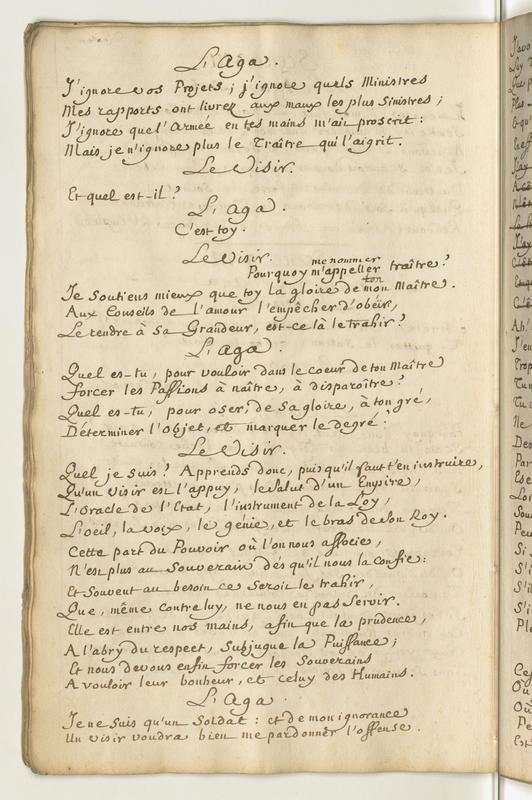 L'Aga.
J'ignore vos Projets; j'ignore quels Ministres
Mes rapports ont livrez aux maux les plus Sinistres;
J'ignore quel'Armée en tes mains m'ait proscrit:
Mais je n'ignore plus le Traître qui l'aigrit.
Le Visir.
Et quel est-il?
L'Aga.
C'est toy.
Le Visir.
me nommer
Pourquoy m'appeller traître?
ton
Je Soutiens mieux que toy la gloire de mon Maître.
Aux Conseils de l'amour l'empêcher d'obéir,
Le rendre à Sa Grandeur, est-ce là le trahir?
L'Aga.
Quel es-tu, pour vouloir dans le coeur de ton Maître
Forcer les Passions à naître, à disparoître?
Quel es-tu, pour oser, de Sa gloire, à ton gré,
Déterminer l'objet, et marquer le degré?
Le Visir.
Quel je suis? Apprends donc, puis qu'il faut t'en instruire,
Qu'un Visir est l'appuy, le Salut d'un Empire,
L'Oracle de l'Etat, l'instrument de la Loy,
L'oeil, la voix, le génie, et le bras de son Roy.
Cette part du Pouvoir où l'on nous associe,
N'est plus au Souverain dés qu'il nous la confie:
Et Souvent au besoin ce Seroit le trahir,
Que, même contre luy, ne nous en pas Servir.
Elle est entre nos mains, afin que la prudence,
A l'abry du respect, Subjugue la Puissance;
Et nous devons enfin forcer les Souverains
A vouloir leur bonheur, et celuy des Humains.
L'Aga.
Je ne Suis qu'un Soldat: et de mon ignorance
Un visir voudra bien me pardonner l'offense.